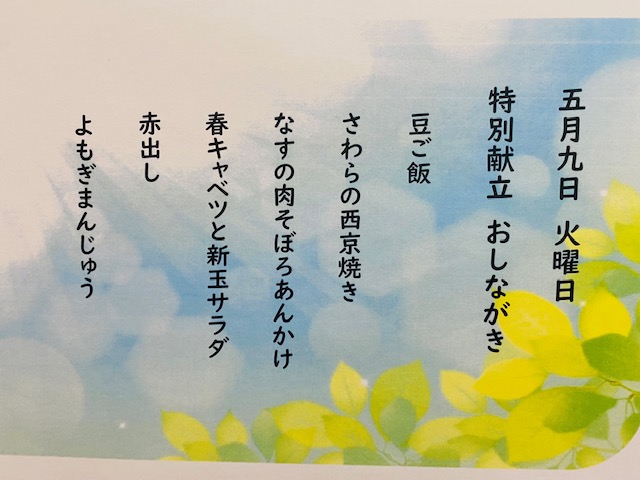 五月九日 火曜日
特別献立 おしながき
豆ご飯
さわらの西京焼き
なすの肉そぼろあんかけ
春キャベツと新玉サラダ
赤出し
よもぎまんじゅう